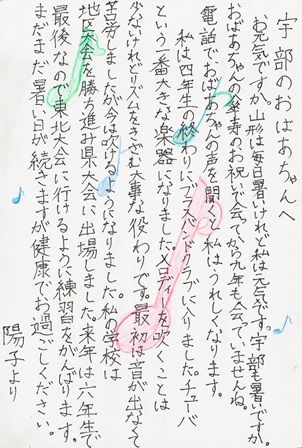 宇部のおばあちゃんへ
お元気ですか。山形は毎日暑いけれど私は元気です。宇部も暑いですか。
おばあちゃんの傘寿のお祝いで会ってから九年も会っていませんね。
電話でおばあちゃんの声を聞くと私はうれしくなります。
私は四年生の終わりにブラスバンドクラブに入りました。チューバ
という一番大きな楽器になりました。メロデーを吹くことは
少ないけれどリズムをきざむ大事な役わりです。最初は音が出なくて
苦労しましたが今は吹けるようになりました。私の学校は
地区大会を勝ち進み県大会に出場しました。来年は六年生で
最後なので東北大会に行けるように練習をがんばります。
まだまだ暑い日が続きますが健康でお過ごしください。
陽子より